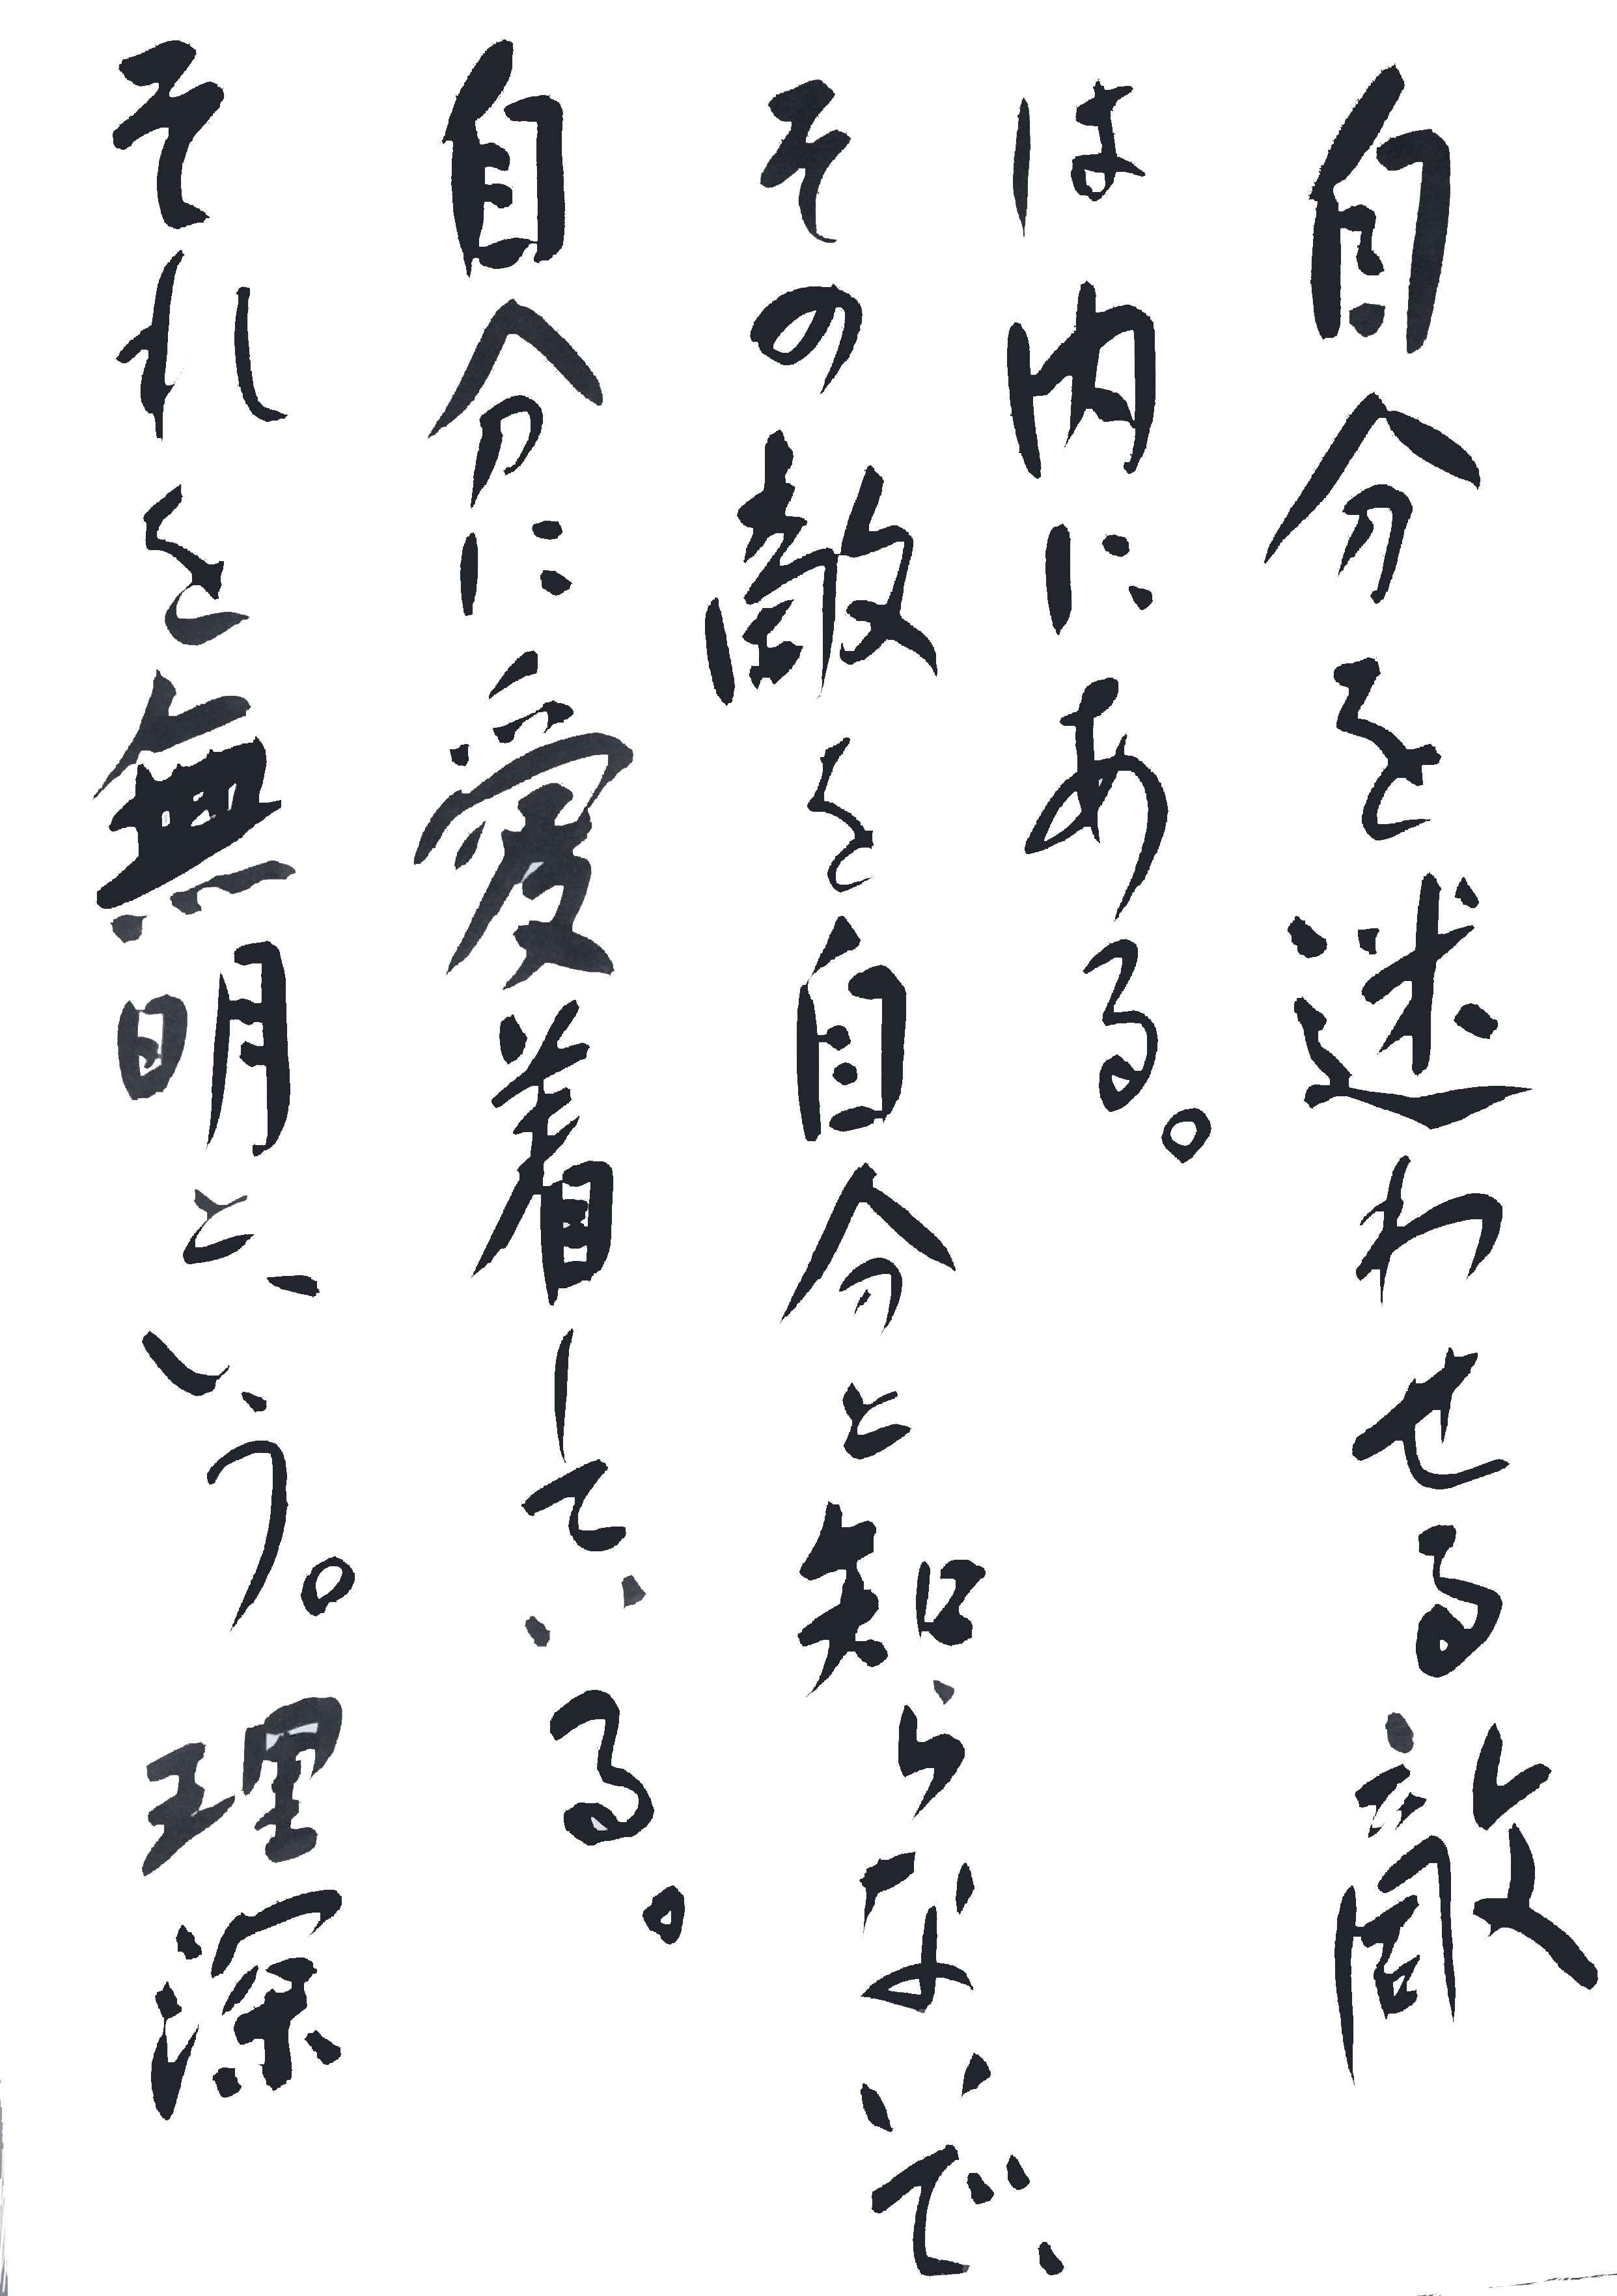 自分を迷わせる敵
は内にある。
その敵を自分と知らないで、
自分に愛着している。
それを無明と、いう。理深